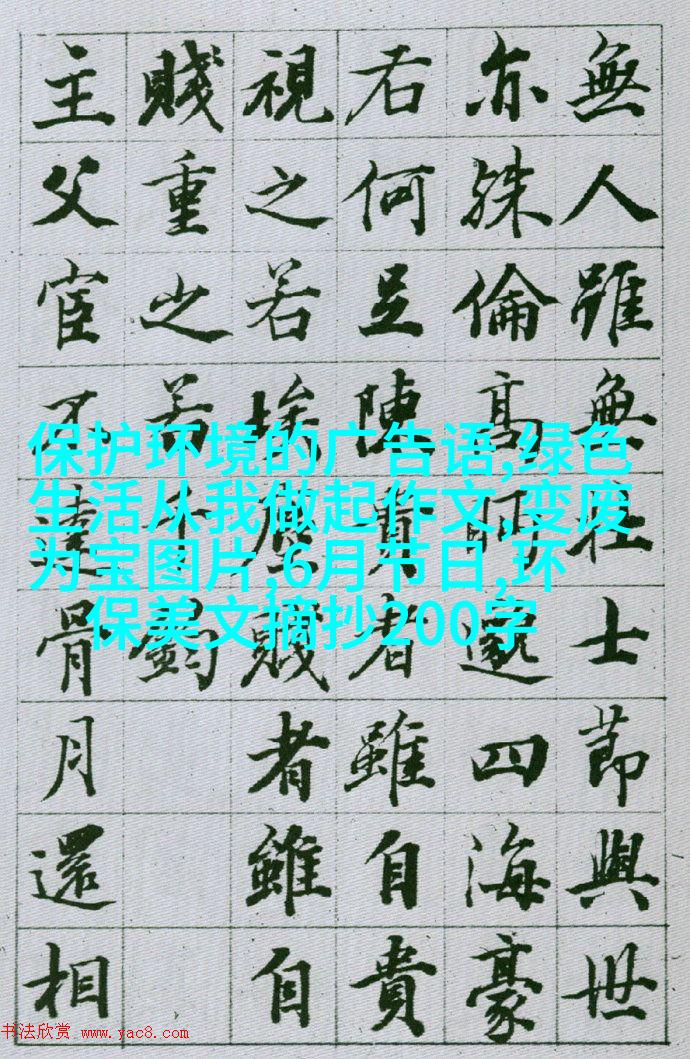 無人雖無壯士節與世
亦殊倫高眄邈四海豪
右何足陳貴者雖自貴
視之若埃塵賤者雖自
賤重之若千鈞
主父宦不達骨月還相
保护环境的广告语,绿色
生活从我做起作文,变废
为宝图片,6月节日,环
保美文摘抄200字
书法欣赏 www.yac8.com